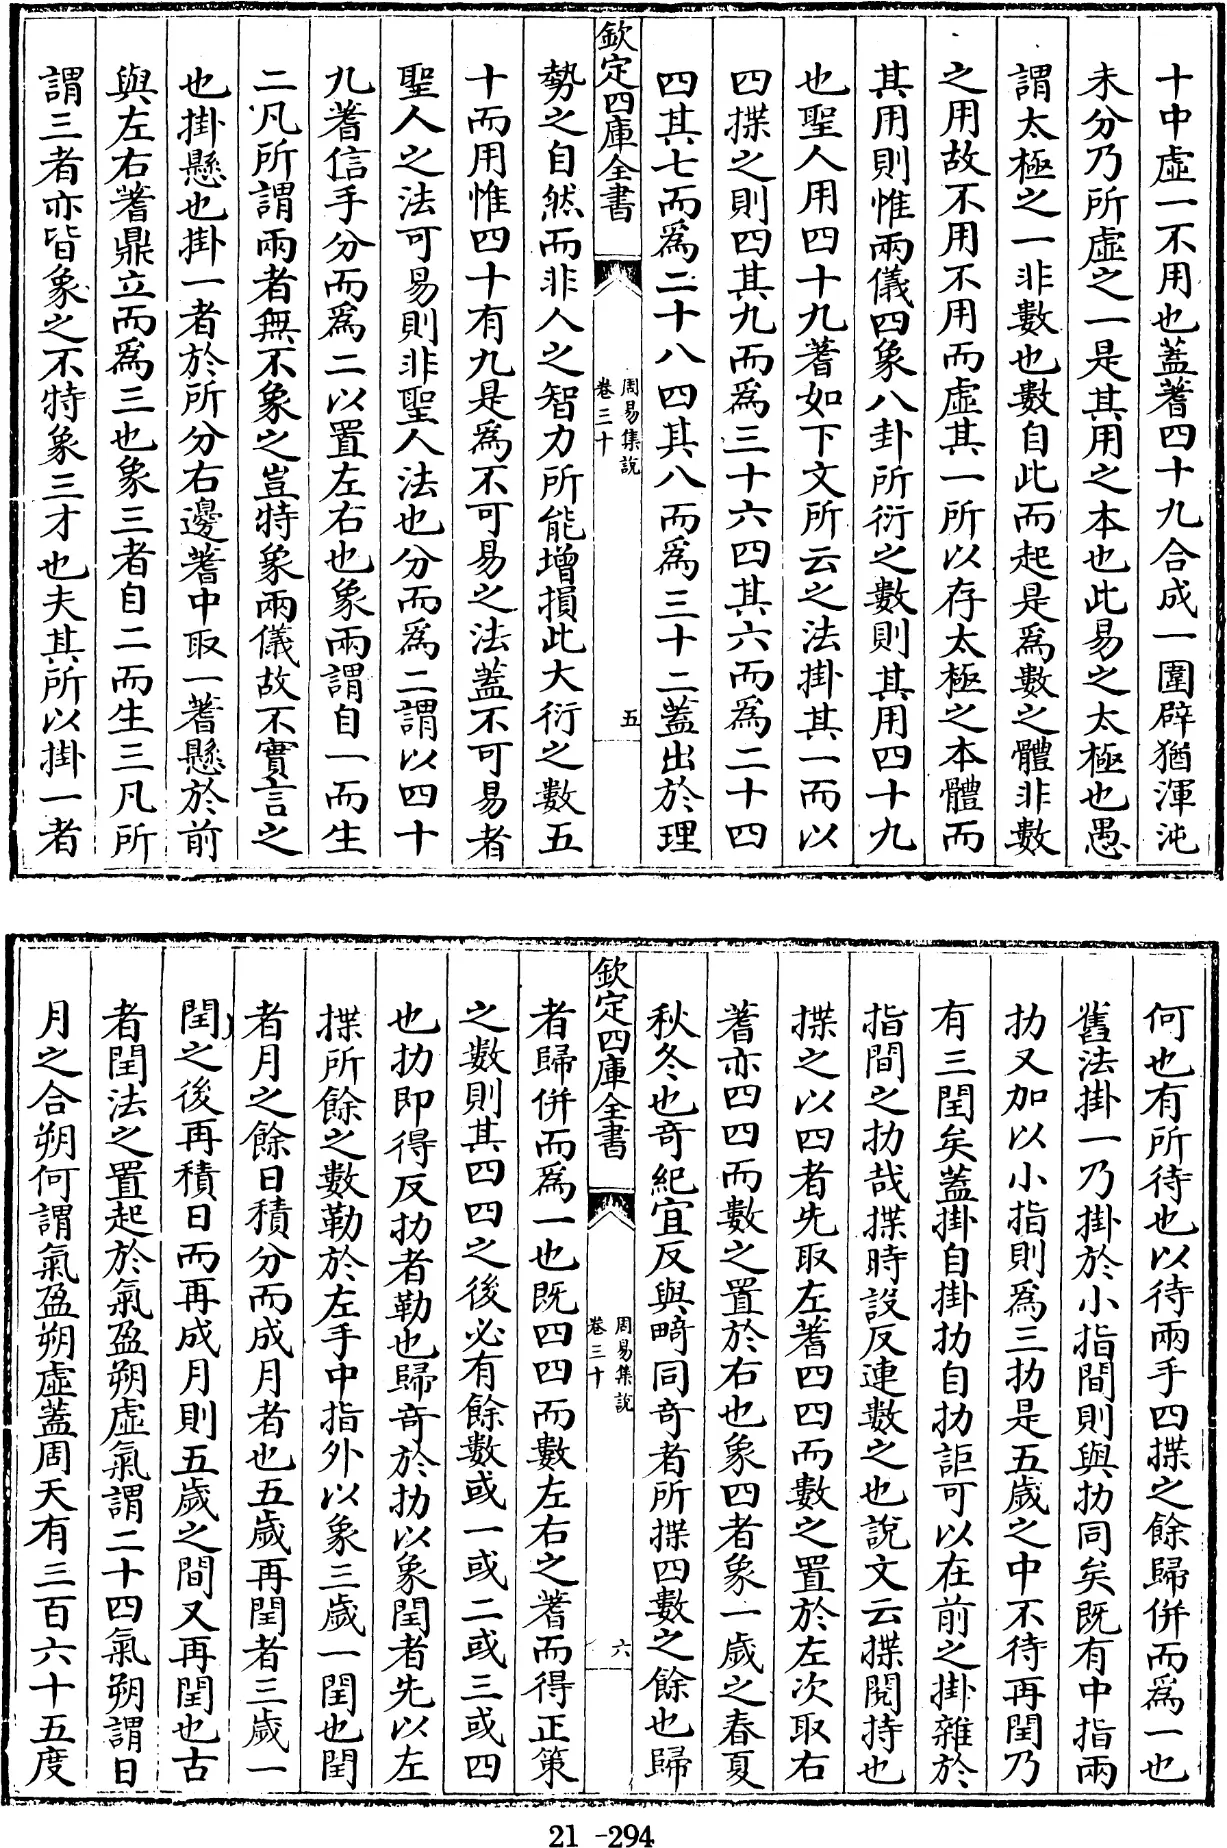 十中虛一不用也蓋蓍四十九合成一圍辟猶渾沌
未分乃所虛之一是其用之本也此易之太極也愚
謂太極之一非數也數自此而起是為數之體非數
之用故不用不用而虛其一所以存太極之本體而
其用則惟兩儀四象八卦所衍之數則其用四十九
也聖人用四十九蓍如下文所云之法掛其一而以
四揲之則四其九而為三十六四其六而為二十四
四其七而為二十八四其八而為三十二蓋出於理
欽定四庫全書
周易集說
卷三十
五
勢之自然而非人之智力所能增損此大衍之數五
十而用惟四十有九是為不可易之法蓋不可易者
聖人之法可易則非聖人法也分而為二謂以四十
九蓍信手分而為二以置左右也象兩謂自一而生
二凡所謂兩者無不象之豈特象兩儀故不實言之
也掛懸也掛一者於所分右邊蓍中取一蓍懸於前
與左右蓍鼎立而為三也象三者自二而生三凡所
謂三者亦皆象之不特象三才也夫其所以掛一者
何也有所待也以待兩手四揲之餘歸併而為一也
舊法掛一乃掛於小指間則與扐同矣既有中指兩
扐又加以小指則為三扐是五歲之中不待再閏乃
有三閏矣蓋掛自掛扐自扐詎可以在前之掛雜於
指間之扐哉揲時設反連數之也說文云揲閱持也
揲之以四者先取左蓍四四而數之置於左次取右
蓍亦四四而數之置於右也象四者象一歲之春夏
秋冬也奇紀宜反與畸同奇者所揲四數之餘也歸
欽定四庫全書
周易集說
卷三十
六
者歸併而為一也既四四而數左右之蓍而得正策
之數則其四四之後必有餘數或一或二或三或四
也扐即得反扐者勒也歸奇於扐以象閏者先以左
揲所餘之數勒於左手中指外以象三歲一閏也閏
者月之餘日積分而成月者也五歲再閏者三歲一
閏之後再積日而再成月則五歲之間又再閏也古
者閏法之置起於氣盈朔虛氣謂二十四氣朔謂日
月之合朔何謂氣盈朔虛蓋周天有三百六十五度
21-294